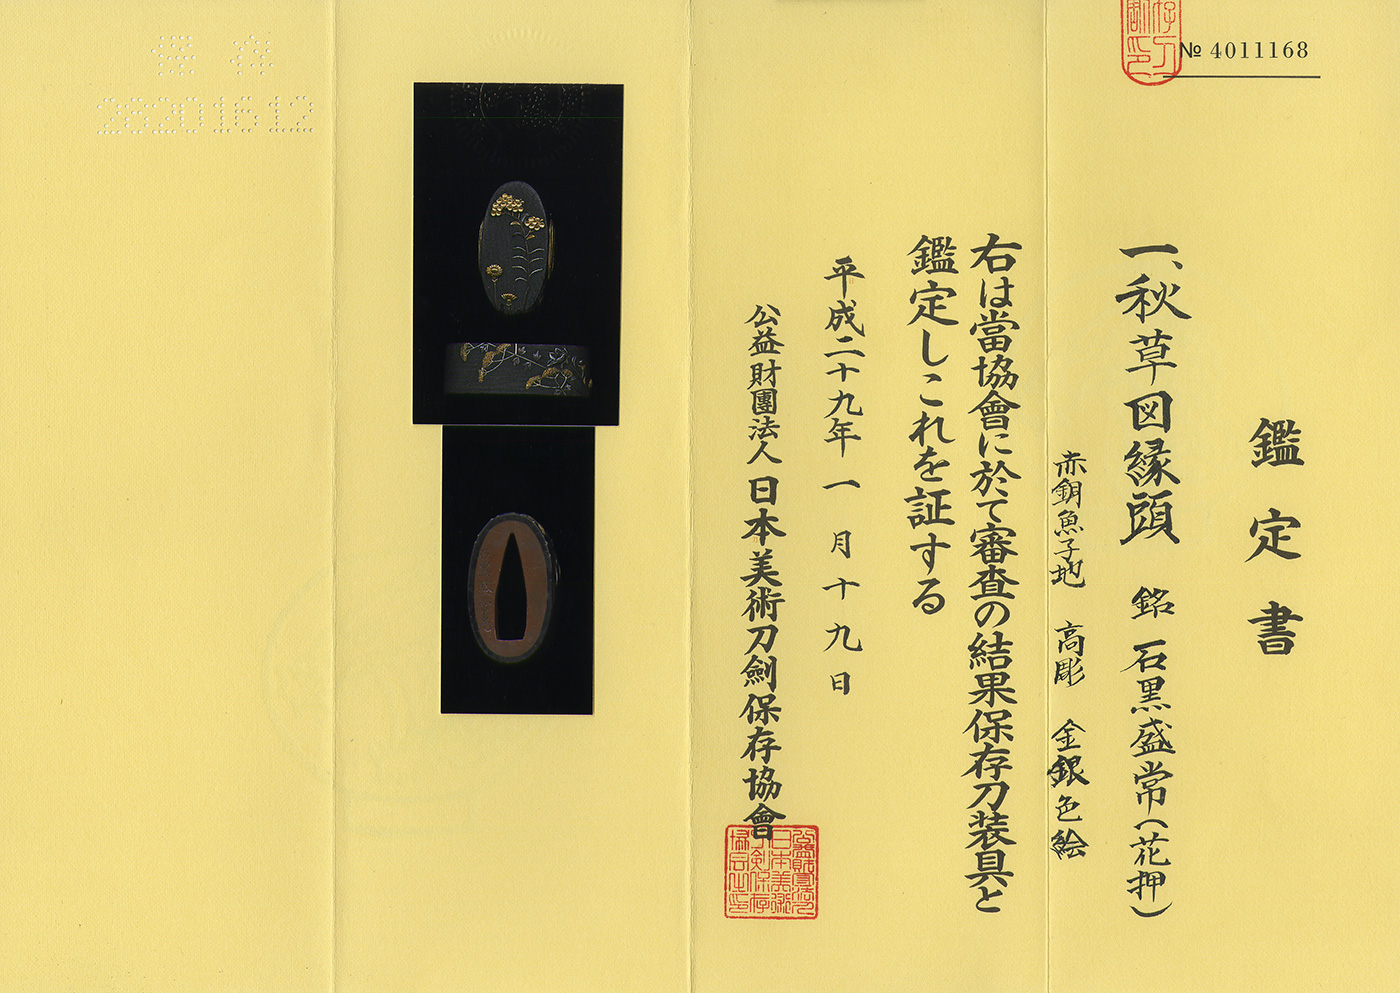 № 4011168
鑑定書
一、秋草図縁頭 銘 石黒盛常(花押)
赤銅魚子地 高彫 金銀色絵
右は當協會に於て審査の結果保存刀装具と
鑑定しこれを証する
平成二十九年一月十九日
公益財團法人 日本美術刀劍保存協會
保存
2620161２